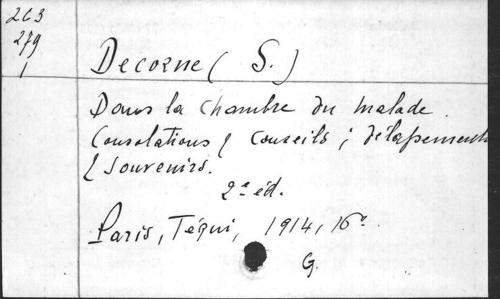 263
279
1
Decorne (S.)
Dans la chambre du malade.
Consolations & conseils ; délassements
& souvenirs.
2e éd.
Paris, Téqui, 1914, 16°.
G.